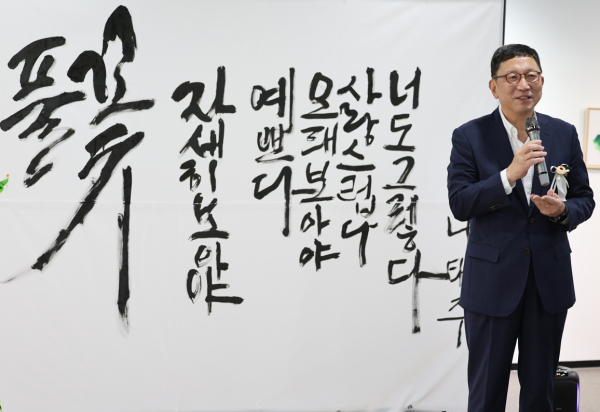 풀꽃
자세히보아야
예쁘다
오래보아야
사랑스럽다
너도그렇다
나태주